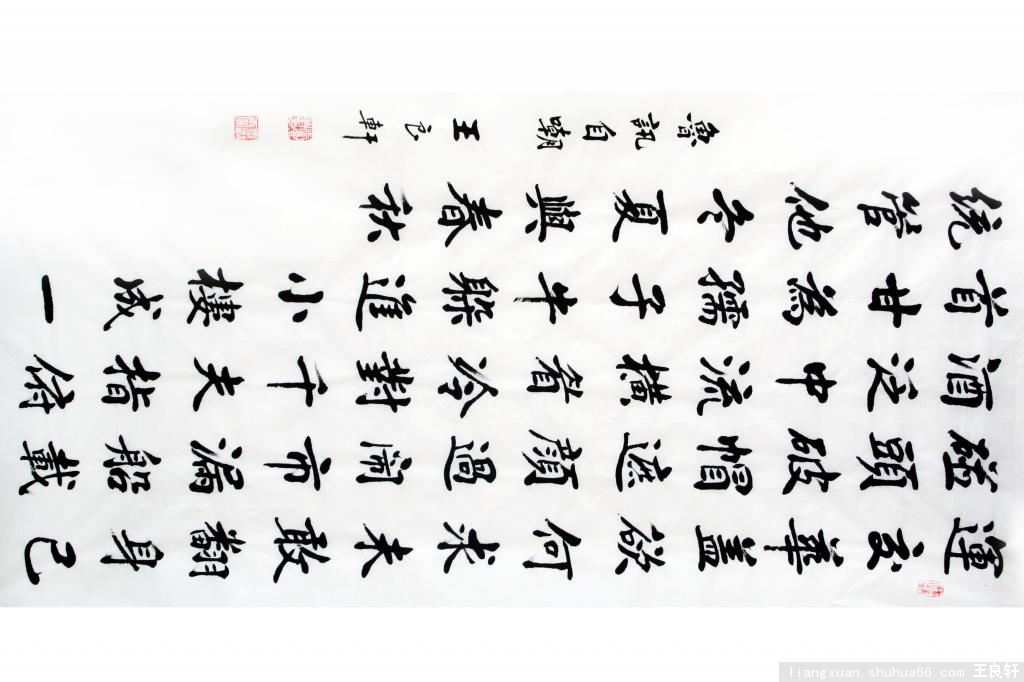 運交華蓋欲何求未敢翻身已
碰頭破帽遮顏過鬧市漏船載
酒泛中流橫眉冷對千夫指俯
首甘為孺子牛躲進小樓成一
統管他冬夏與春秋
魯訊自嘲 王良軒
liangxuan.shuhua66.com 王良轩